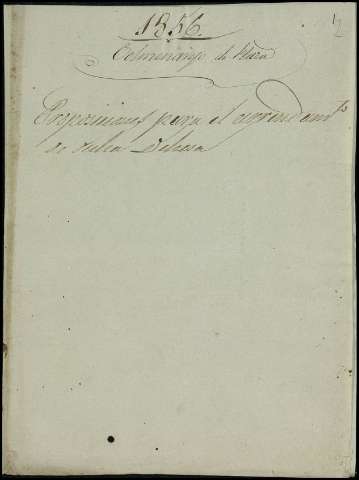 1856.
1/2
Colmenarejo de Plaza
Proposiciones para el arrendam.to
de dicha Dehesa